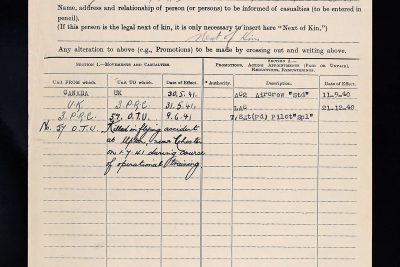 Name, address and relationship of person (or persons) to be informed of casualties (to be entered in pencil).
(If this person is the legal next of kin, it is only necessary to insert here "Next of Kin.")
Next of Kin
Any alteration to above (e.g., Promotions) to be made by crossing out and writing above.
SECTION 1.—MOVEMENTS AND CASUALTIES.
SECTION 2.—
PROMOTIONS, ACTING APPOINTMENTS (PAID OR UNPAID), REDUCTIONS, REMUSTERINGS.
Unit FROM which. Unit TO which. Date of Effect. *Authority. Description. Date of Effect.
CANADA UK 20.5.41. AC2 AirCrew "Std" 11-9-40
U.K 3.P.R.C. 31.5.41. LAC 21-12-40
3.P.R.C. 57. O.T.U. 9.6.41 T/Sgt(Pd) Pilot"Spl"
No. 57 O.T.U. Killed in flying accident
at Upton near Chester
on 1.7.41 during course
of operational training.